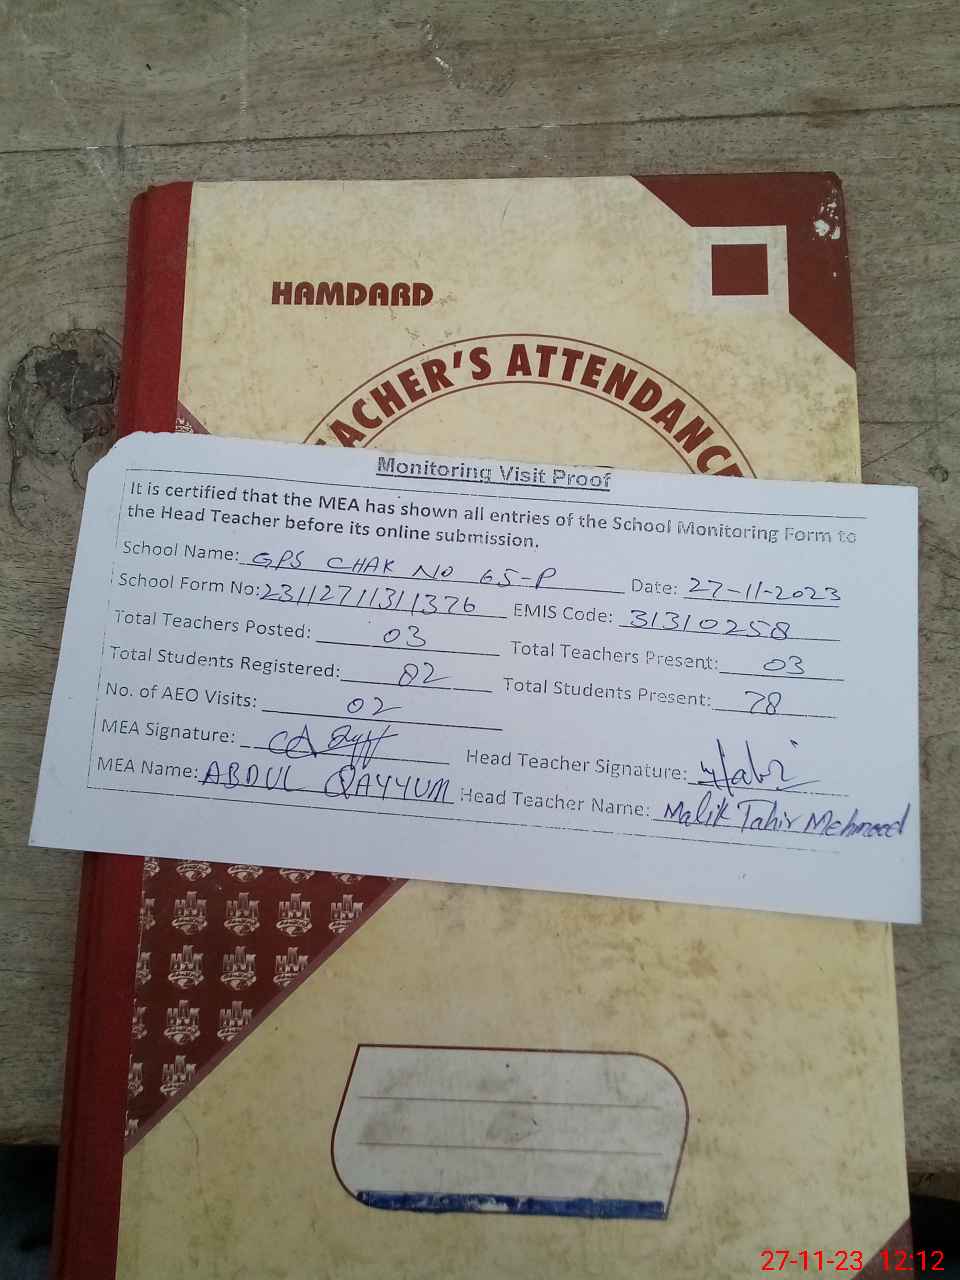 HAMDARD
TEACHER'S ATTENDANCE
Monitoring Visit Proof
It is certified that the MEA has shown all entries of the School Monitoring Form to
the Head Teacher before its online submission.
School Name: GPS CHAK NO 65-P Date: 27-11-2023
School Form No: 23112711311376 EMIS Code: 31310258
Total Teachers Posted: 03 Total Teachers Present: 03
Total Students Registered: 82 Total Students Present: 78
No. of AEO Visits: 02
MEA Signature: Head Teacher Signature:
MEA Name: ABDUL QAYYUM Head Teacher Name: Malik Tahir Mehmood
27-11-23 12:12